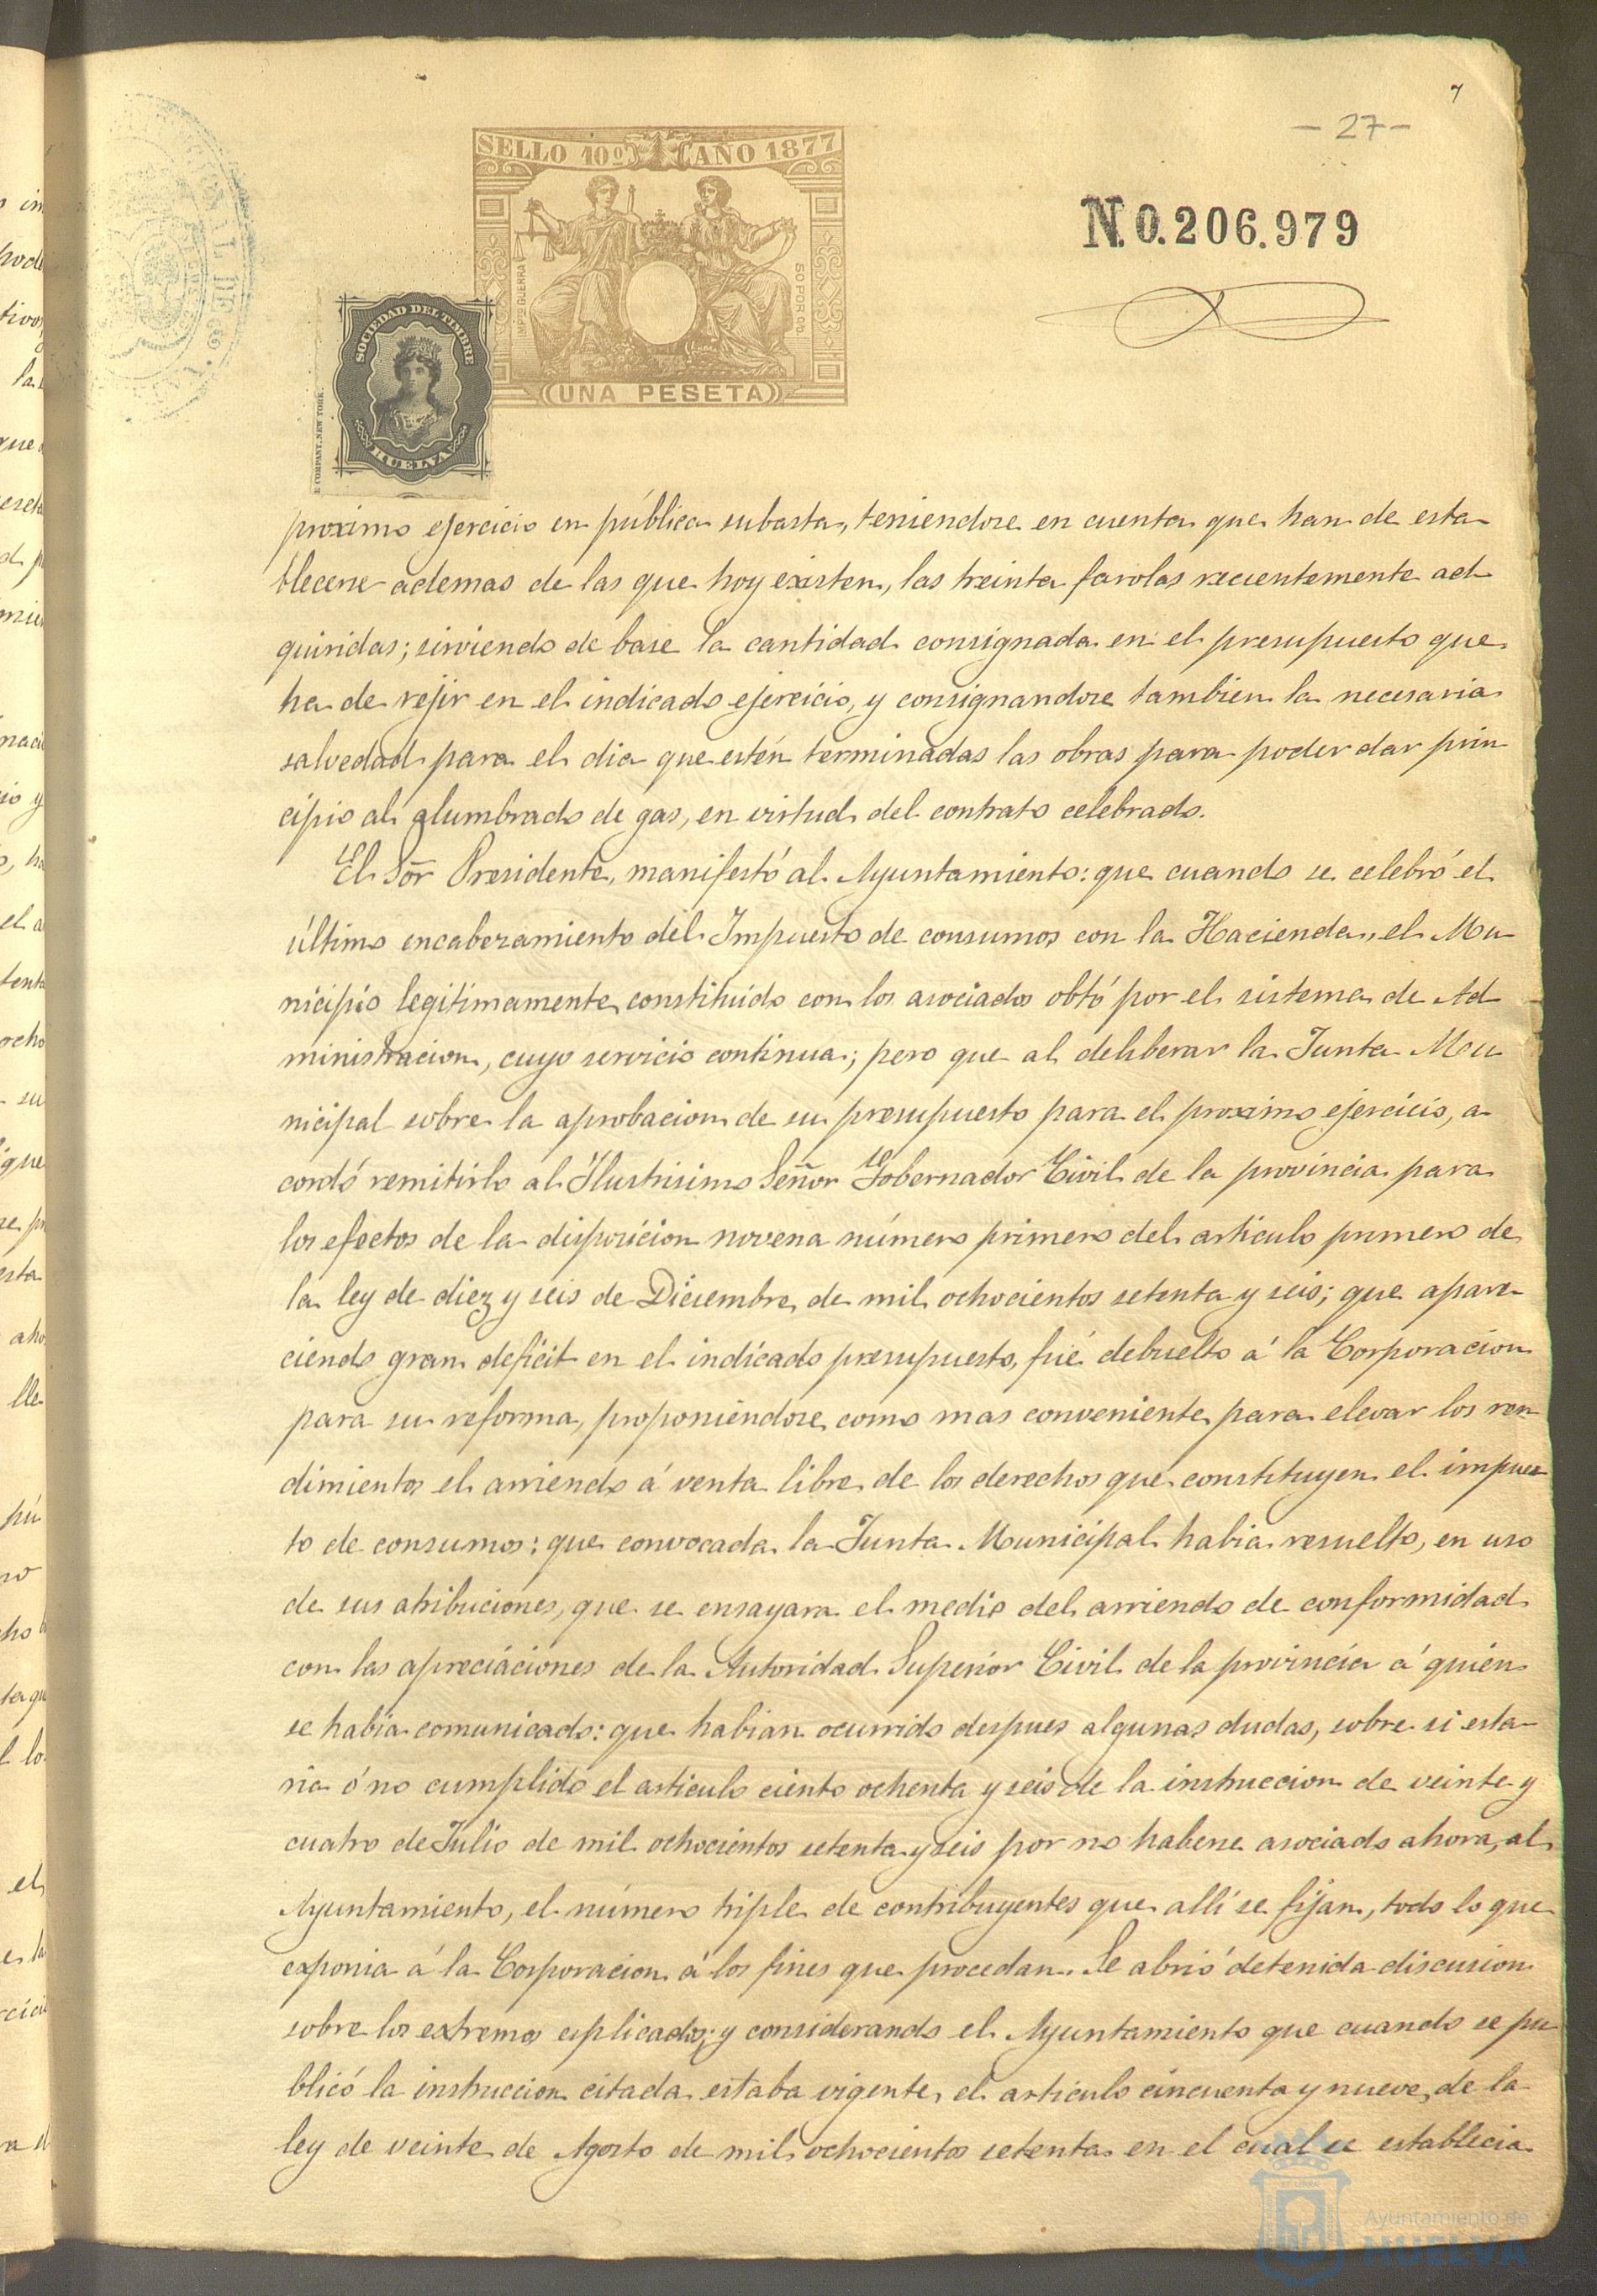 7
- 27 -
SELLO 10º AÑO 1877
IMPTO GUERRA
50 POR CTO.
UNA PESETA
N.0.206.979
SOCIEDAD DEL TIMBRE
HUELVA
COMPANY. NEW YORK.
proximo ejercicio en pública subasta, teniendose en cuenta que han de esta-
blecerse ademas de las que hoy existen, las treinta farolas recientemente ad-
quiridas; sirviendo de base la cantidad consignada en el presupuesto que
ha de rejir en el indicado ejercicio, y consignandose tambien la necesaria
salvedad para el dia que estén terminadas las obras para poder dar prin
cipio al alumbrado de gas, en virtud del contrato celebrado.
El Sor Presidente, manifestó al Ayuntamiento: que cuando se celebró el
último encabezamiento del Impuesto de consumos con la Hacienda, el Mu-
nicipio legitimamente constituido con los asociados obtó por el sistema de Ad
ministracion, cuyo servicio continua; pero que al deliberar la Junta Mu
nicipal sobre la aprobacion de su presupuesto para el proximo ejercicio, a-
cordó remitirlo al Ilustrisimo Señor Gobernador Civil de la provincia para
los efectos de la disposicion novena número primero del articulo primero de
la ley de diez y seis de Diciembre de mil ochocientos setenta y seis; que apare-
ciendo gran deficit en el indicado presupuesto, fué debuelto á la Corporacion
para su reforma, proponiéndose como mas conveniente para elevar los ren
dimientos el arriendo á venta libre de los derechos que constituyen el impues
to de consumos: que convocada la Junta Municipal habia resuelto, en uso
de sus atribuciones, que se ensayara el medio del arriendo de conformidad
con las apreciaciones de la Autoridad Superior Civil de la provincia á quien
se habia comunicado: que habian ocurrido despues algunas dudas, sobre si esta-
ria ó no cumplido el articulo ciento ochenta y seis de la instruccion de veinte y
cuatro de Julio de mil ochocientos setenta y seis por no haberse asociado ahora, al
Ayuntamiento, el número triple de contribuyentes que allí se fijan, todo lo que
exponia á la Corporacion á los fines que procedan. Se abrió detenida discusion
sobre los extremos esplicados; y considerando el Ayuntamiento que cuando se pu
blicó la instruccion citada estaba vigente, el articulo cincuenta y nueve, de la
ley de veinte de Agosto de mil ochocientos setenta en el cual se establecia
Ayuntamiento de
HUELVA